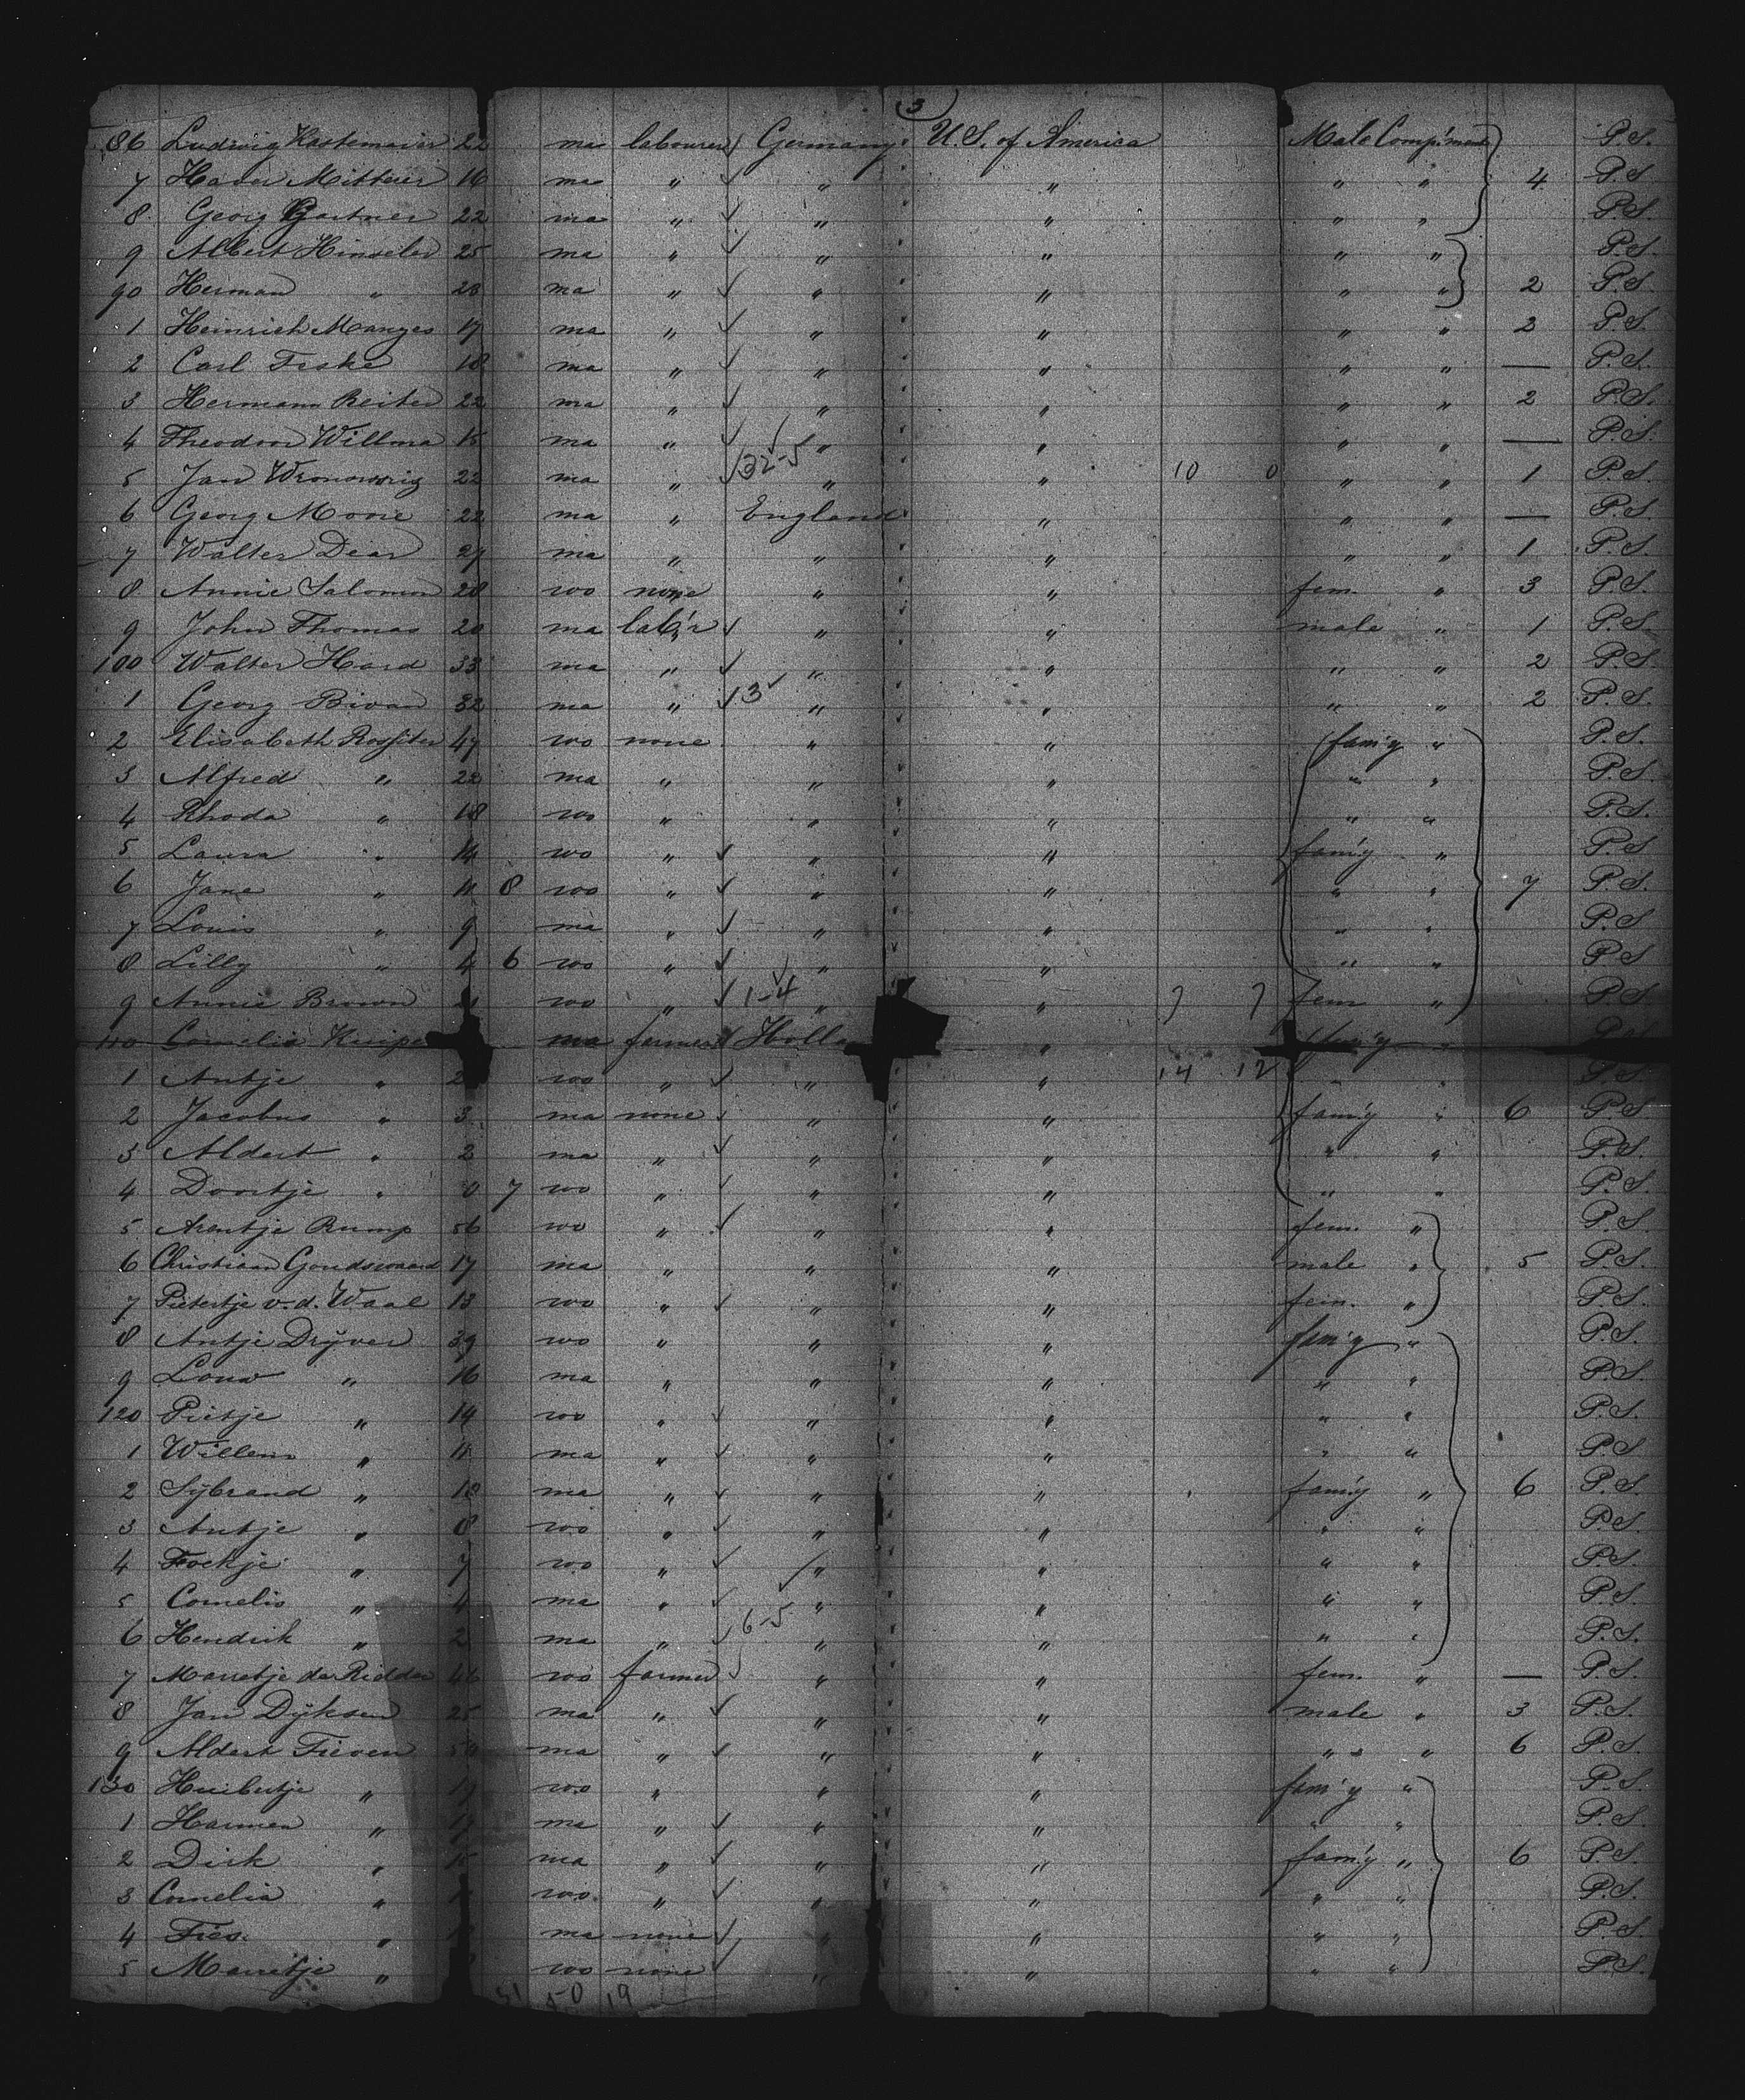 3
86 Ludwig Kastemaier 22 ma labourer Germany U.S. of America Male Comp'ment P.S.
7 Haver Mitterer 16 ma " " " " " 4 P.S.
8 Georg Gartner 22 ma " " " " " P.S.
9 Albert Hinseler 25 ma " " " " " P.S.
90 Herman " 28 ma " " " " " 2 P.S.
1 Heinrich Manges 17 ma " " " " " 2 P.S.
2 Carl Feske 18 ma " " " " " — P.S.
3 Hermann Reiter 22 ma " " " " " 2 P.S.
4 Theodoor Willma 15 ma " " " " " — P.S.
5 Jan 22 ma " 32-5 " " 10 0 " " 1 P.S.
6 Georg Morre 22 ma " England " " " — P.S.
7 Walter Dear 27 ma " " " " " 1 P.S.
8 Annie Salomon 28 wo none " " fem. " 3 P.S.
9 John Thomas 20 ma lab'r " " male " 1 P.S.
100 Walter Hard 33 ma " " " " " 2 P.S.
1 Georg Bivan 32 ma " 3 " " " " 2 P.S.
2 Elisabeth Rossiter 47 wo none " " fam'y " P.S.
3 Alfred " 22 ma " " " " " P.S.
4 Rhoda " 18 wo " " " " " P.S.
5 Laura " 14 wo " " " fam'y " P.S.
6 Jane " 11 8 wo " " " " " 7 P.S.
7 Louis " 9 ma " " " " " P.S.
8 Lilly " 4 6 wo " " " " " P.S.
9 Annie Brown 21 wo " 1-4 " " 7 7 fem " P.S.
110 Cornelis Kuiper ma farmer Holla " fam'y "
1 Antje " 2 wo " " " 14 12 " " P.S.
2 Jacobus " 3 ma none " " fam'y " 6 P.S.
3 Aldert " 2 ma " " " " " P.S.
4 Doortje " 0 7 wo " " " " " P.S.
5 Arentje Rump 56 wo " " " fem. " P.S.
6 Christiaan Goudswaard 17 ma " " " male " 5 P.S.
7 Pietertje v.d. Waal 13 wo " " " fem. " P.S.
8 Antje Drijver 39 wo " " " fam'y " P.S.
9 Louw " 16 ma " " " " " P.S.
120 Pietje " 14 wo " " " " " P.S.
1 Willem " 11 ma " " " " " P.S.
2 Sijbrand " 10 ma " " " fam'y " 6 P.S.
3 Antje " 8 wo " " " " " P.S.
4 Fockje " 7 wo " " " " " P.S.
5 Cornelis " 4 ma " " " " " P.S.
6 Hendrik " 2 ma " 6-5 " " " " P.S.
7 Marretje de Ridder 46 wo farmer " " fem. " — P.S.
8 Jan Dijksen 25 ma " " " male " 3 P.S.
9 Aldert Tieven 50 ma " " " " " 6 P.S.
130 Huibertje " 19 wo " " " fam'y " P.S.
1 Harmen " 17 ma " " " " " P.S.
2 Dirk " 15 ma " " " fam'y " 6 P.S.
3 Cornelia " wo " " " " " P.S.
4 Ties " ma none " " " " P.S.
5 Marretje " wo none " " " " P.S.
51 50 19